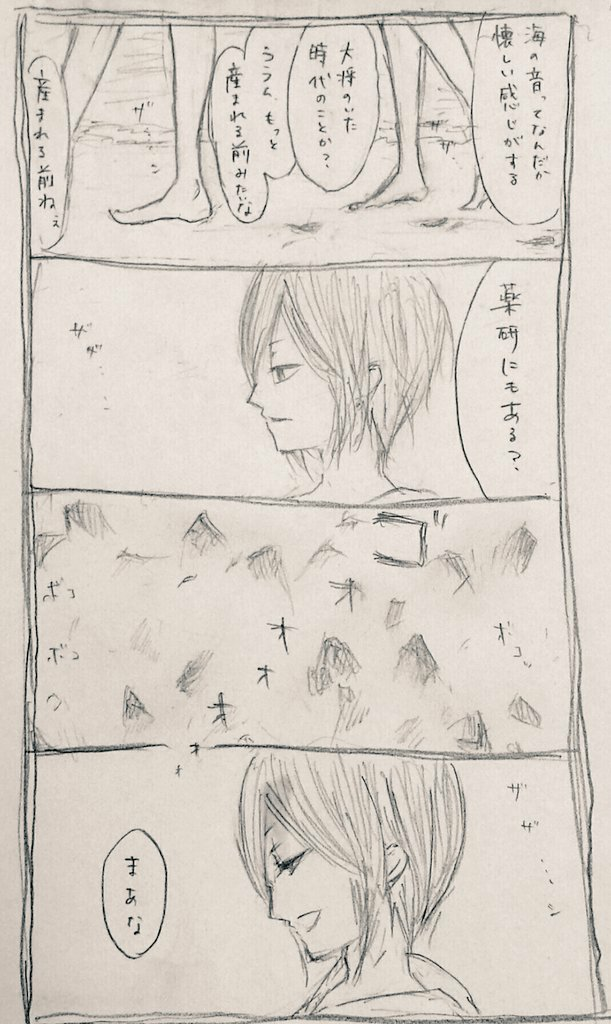 海の音ってなんだか
懐しい感じがする
ザザ…
大将のいた
時代のことか?
ううん、もっと
産まれる前みたいな
ザ……ン
産まれる前ねぇ
薬研にもある?
ザザ……
ボコッ
ゴオオオオオ
ボコ
ボコ
ザザ……ン
まあな